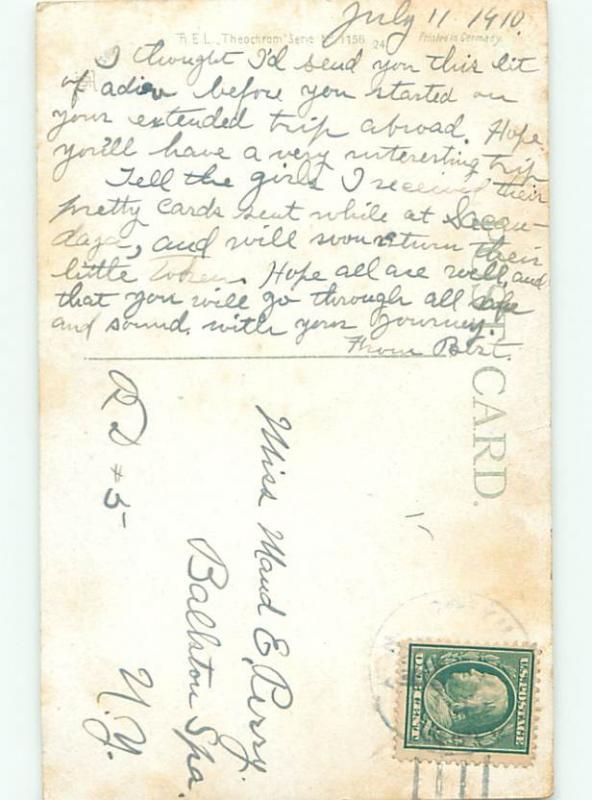 July 11 1910.
R.E.L. „Theochrom" Serie No 1156
24
Printed in Germany.
I thought I'd send you this bit
of adieu before you started on
your extended trip abroad. Hope
you'll have a very interesting trip
Tell the girls I received their
pretty cards sent while at Sacan-
daga, and will soon return their
little token. Hope all are well, and
that you will go through all safe
and sound, with your journey.
From Bert.
POST CARD.
Miss Maud E. Perry.
Ballston Spa.
N.Y.
RD #5-
U.S. POSTAGE
ONE CENT